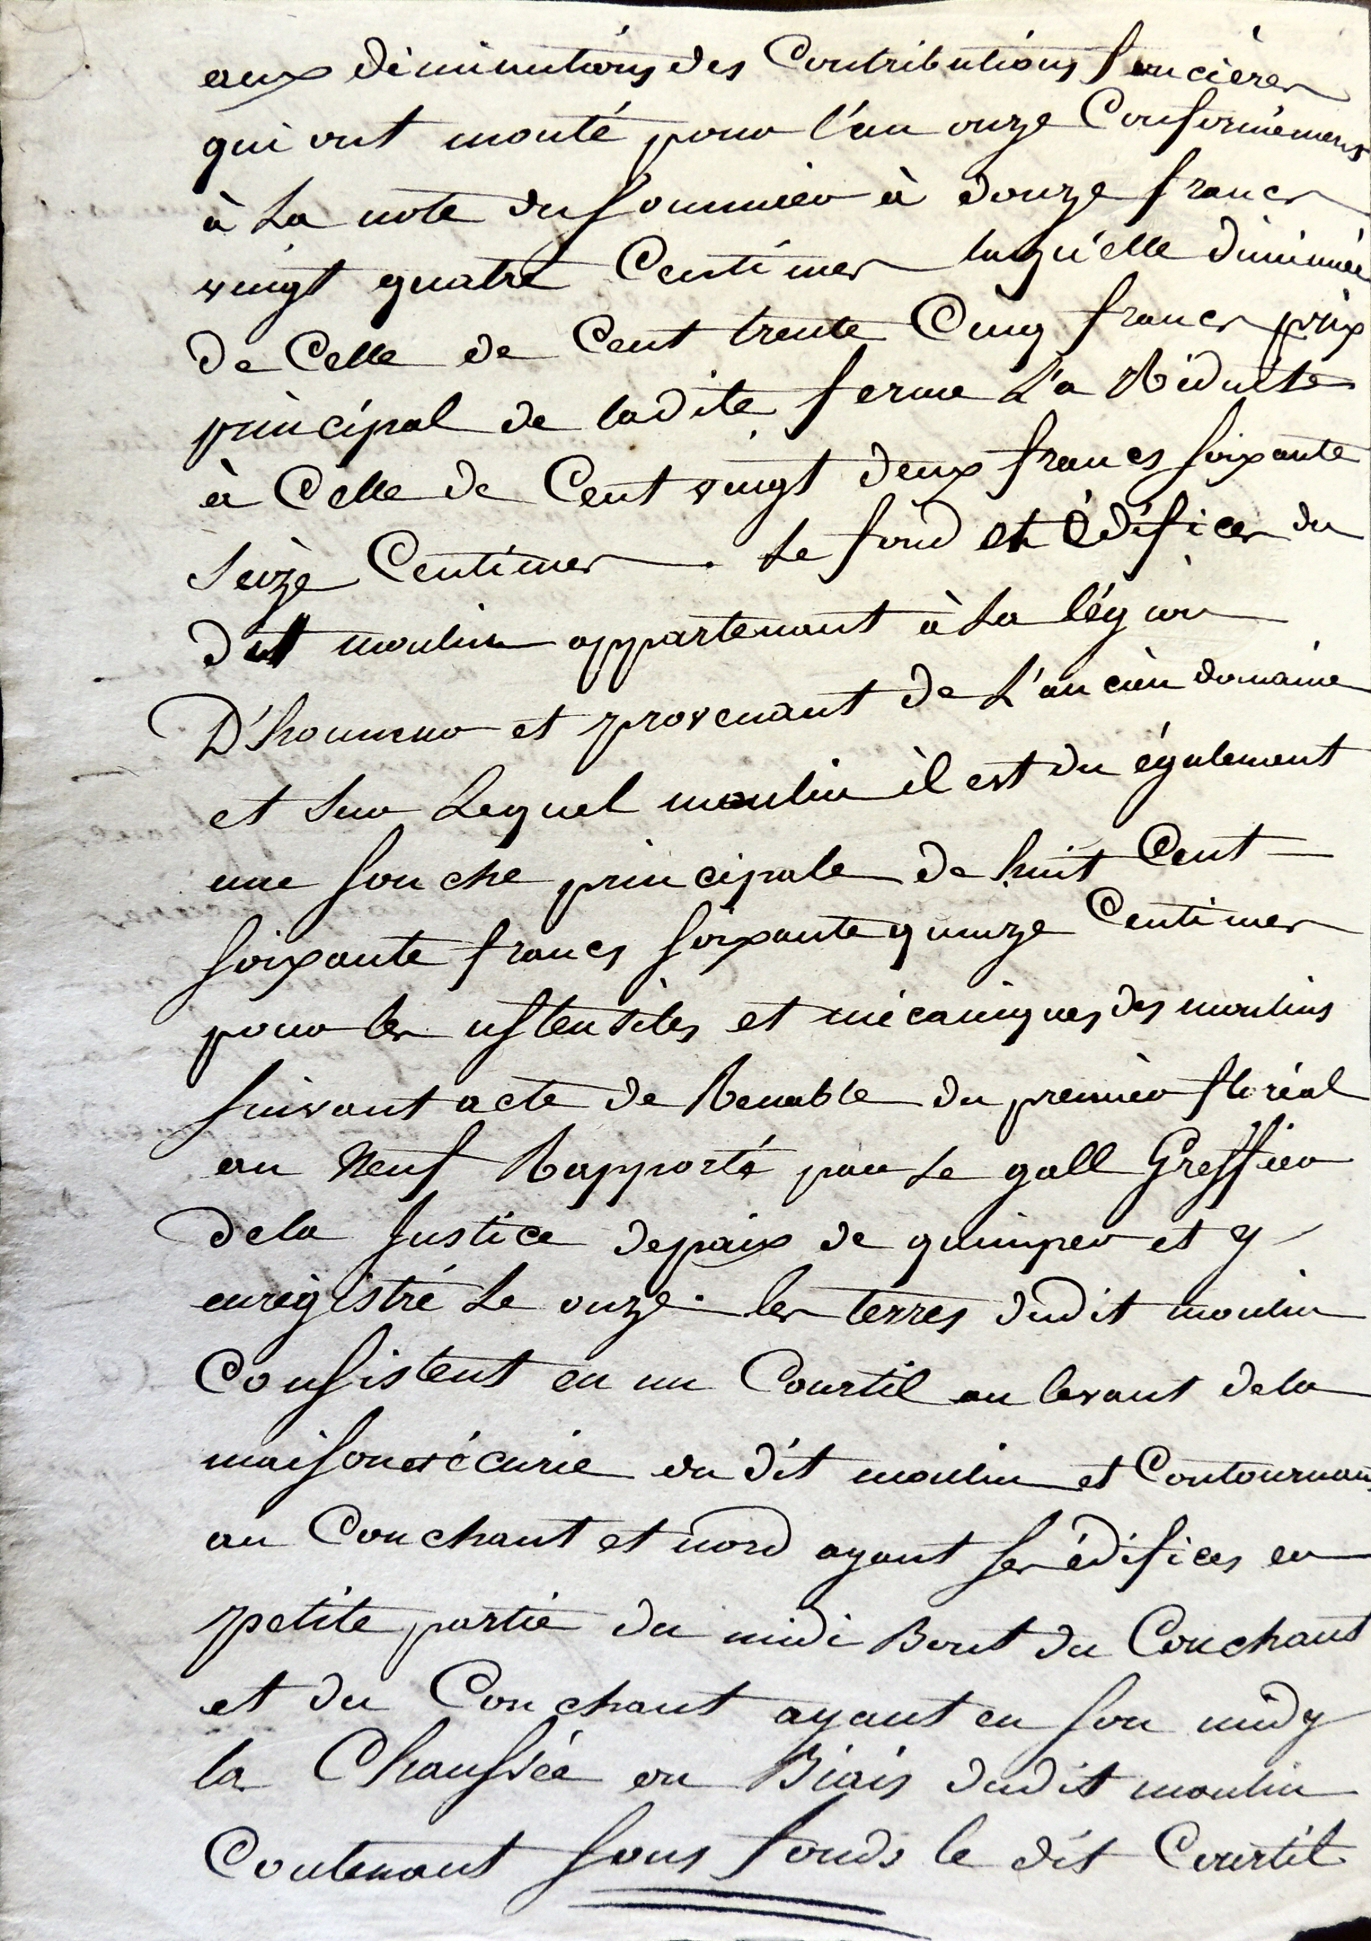 aux diminutions des Contributions foncières
qui ont monté pour l'an onze Conformément
à La note du sommier à douze francs
vingt quatre Centimes laqu'elle diminuée
de Celle de Cent trente Cinq francs prix
principal de ladite ferme L'a Réduite
à Celle de Cent vingt deux francs soixante
seize Centimes. Le fond et édifices du
dit moulin appartenant à La légion
D'honneur et provenant de L'ancien domaine
et sur Lequel moulin il est du également
une souche principale de huit Cent
soixante francs soixante quinze Centimes
pour les ustensiles et mécaniques des moulins
suivant acte de Renable du premier floréal
an Neuf Rapporté par Le gall Greffier
dela Justice depaix de quimper et y
enregistré Le onze. les terres dudit moulin
Consistent en un Courtil au levant dela
maison et écurie du dit moulin et Contournant
au Couchant et nord ayant ses édifices en
petite partie du midi Bout du Couchant
et du Couchant ayant en son midy
la Chaussée ou Biais dudit moulin
Contenant sous fonds le dit Courtil